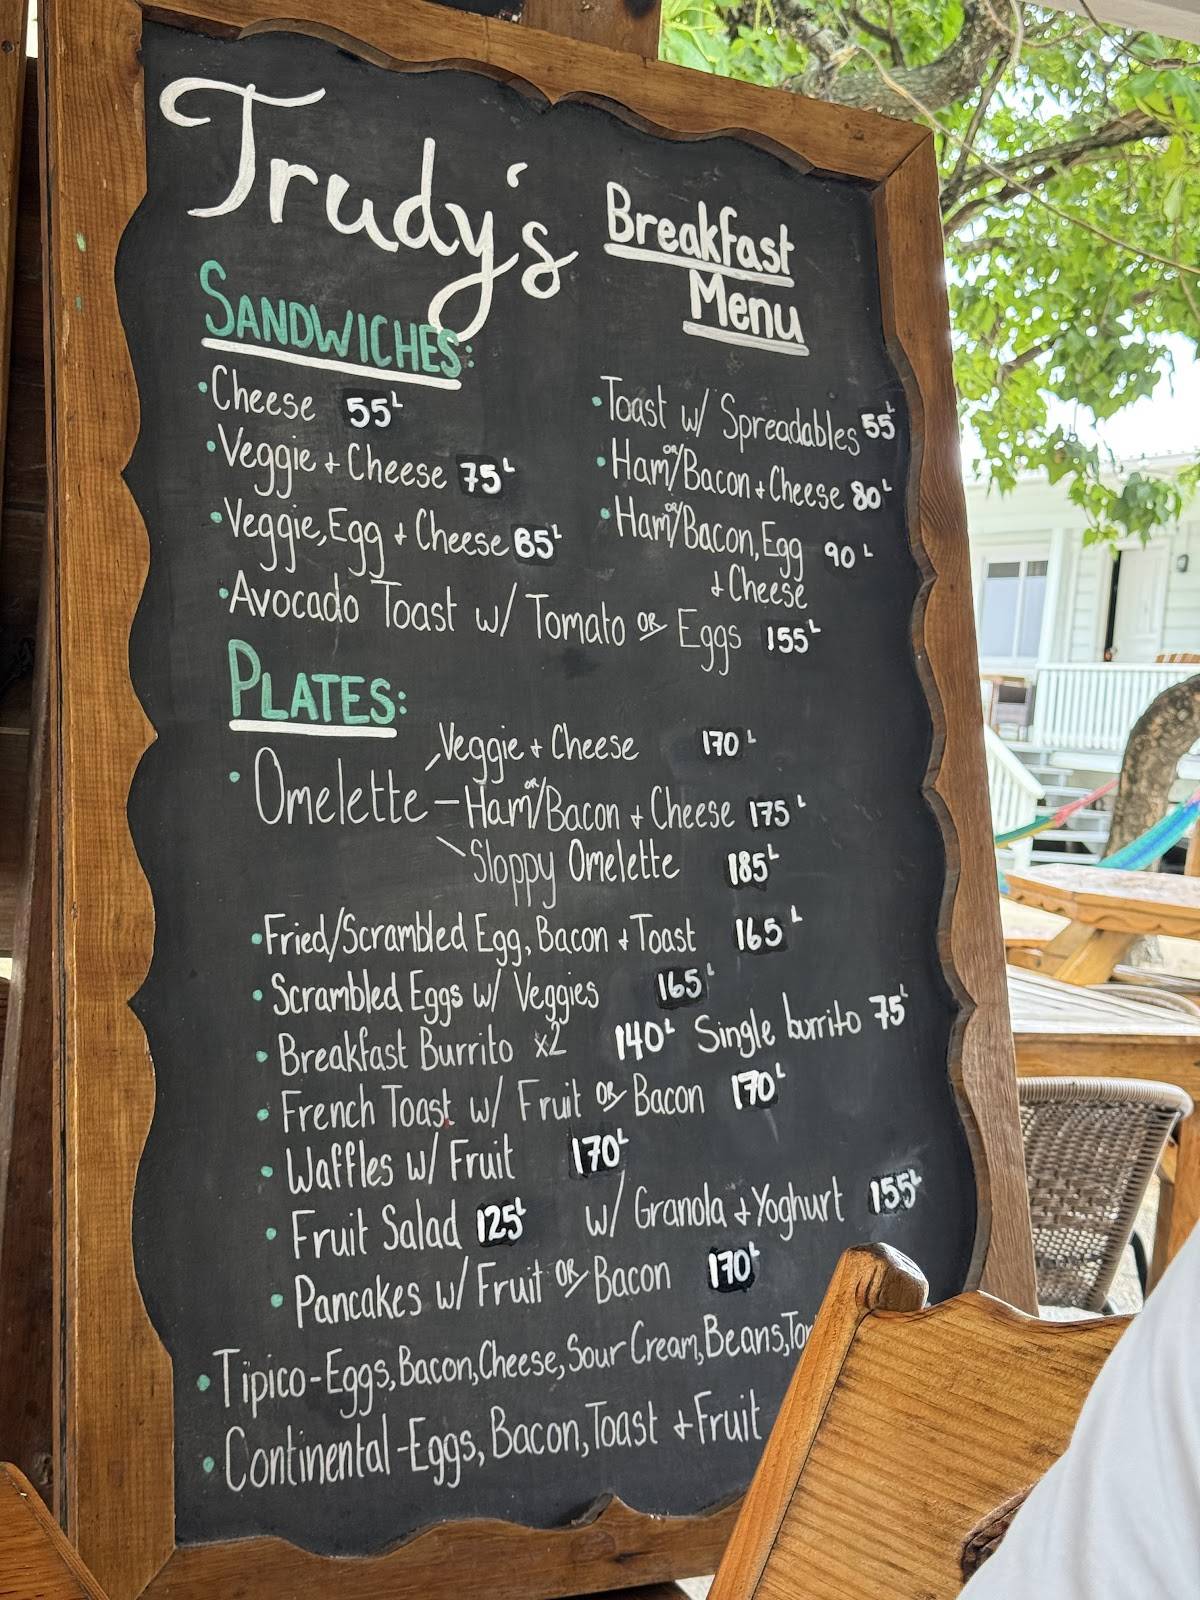 Trudy's
Breakfast
Menu
SANDWICHES:
• Cheese 55L
• Veggie + Cheese 75L
• Veggie, Egg + Cheese 85L
• Toast w/ Spreadables 55L
• Ham or/Bacon + Cheese 80L
• Ham or/Bacon, Egg 90L
+ Cheese
• Avocado Toast w/ Tomato OR Eggs 155L
PLATES:
• Omelette
Veggie + Cheese 170L
– Ham or/Bacon + Cheese 175L
Sloppy Omelette 185L
• Fried/Scrambled Egg, Bacon + Toast 165L
• Scrambled Eggs w/ Veggies 165L
• Breakfast Burrito x2 140L Single burrito 75L
• French Toast w/ Fruit OR Bacon 170L
• Waffles w/ Fruit 170L
• Fruit Salad 125L w/ Granola + Yoghurt 155L
• Pancakes w/ Fruit OR Bacon 170L
• Tipico - Eggs, Bacon, Cheese, Sour Cream, Beans,
• Continental - Eggs, Bacon, Toast + Fruit